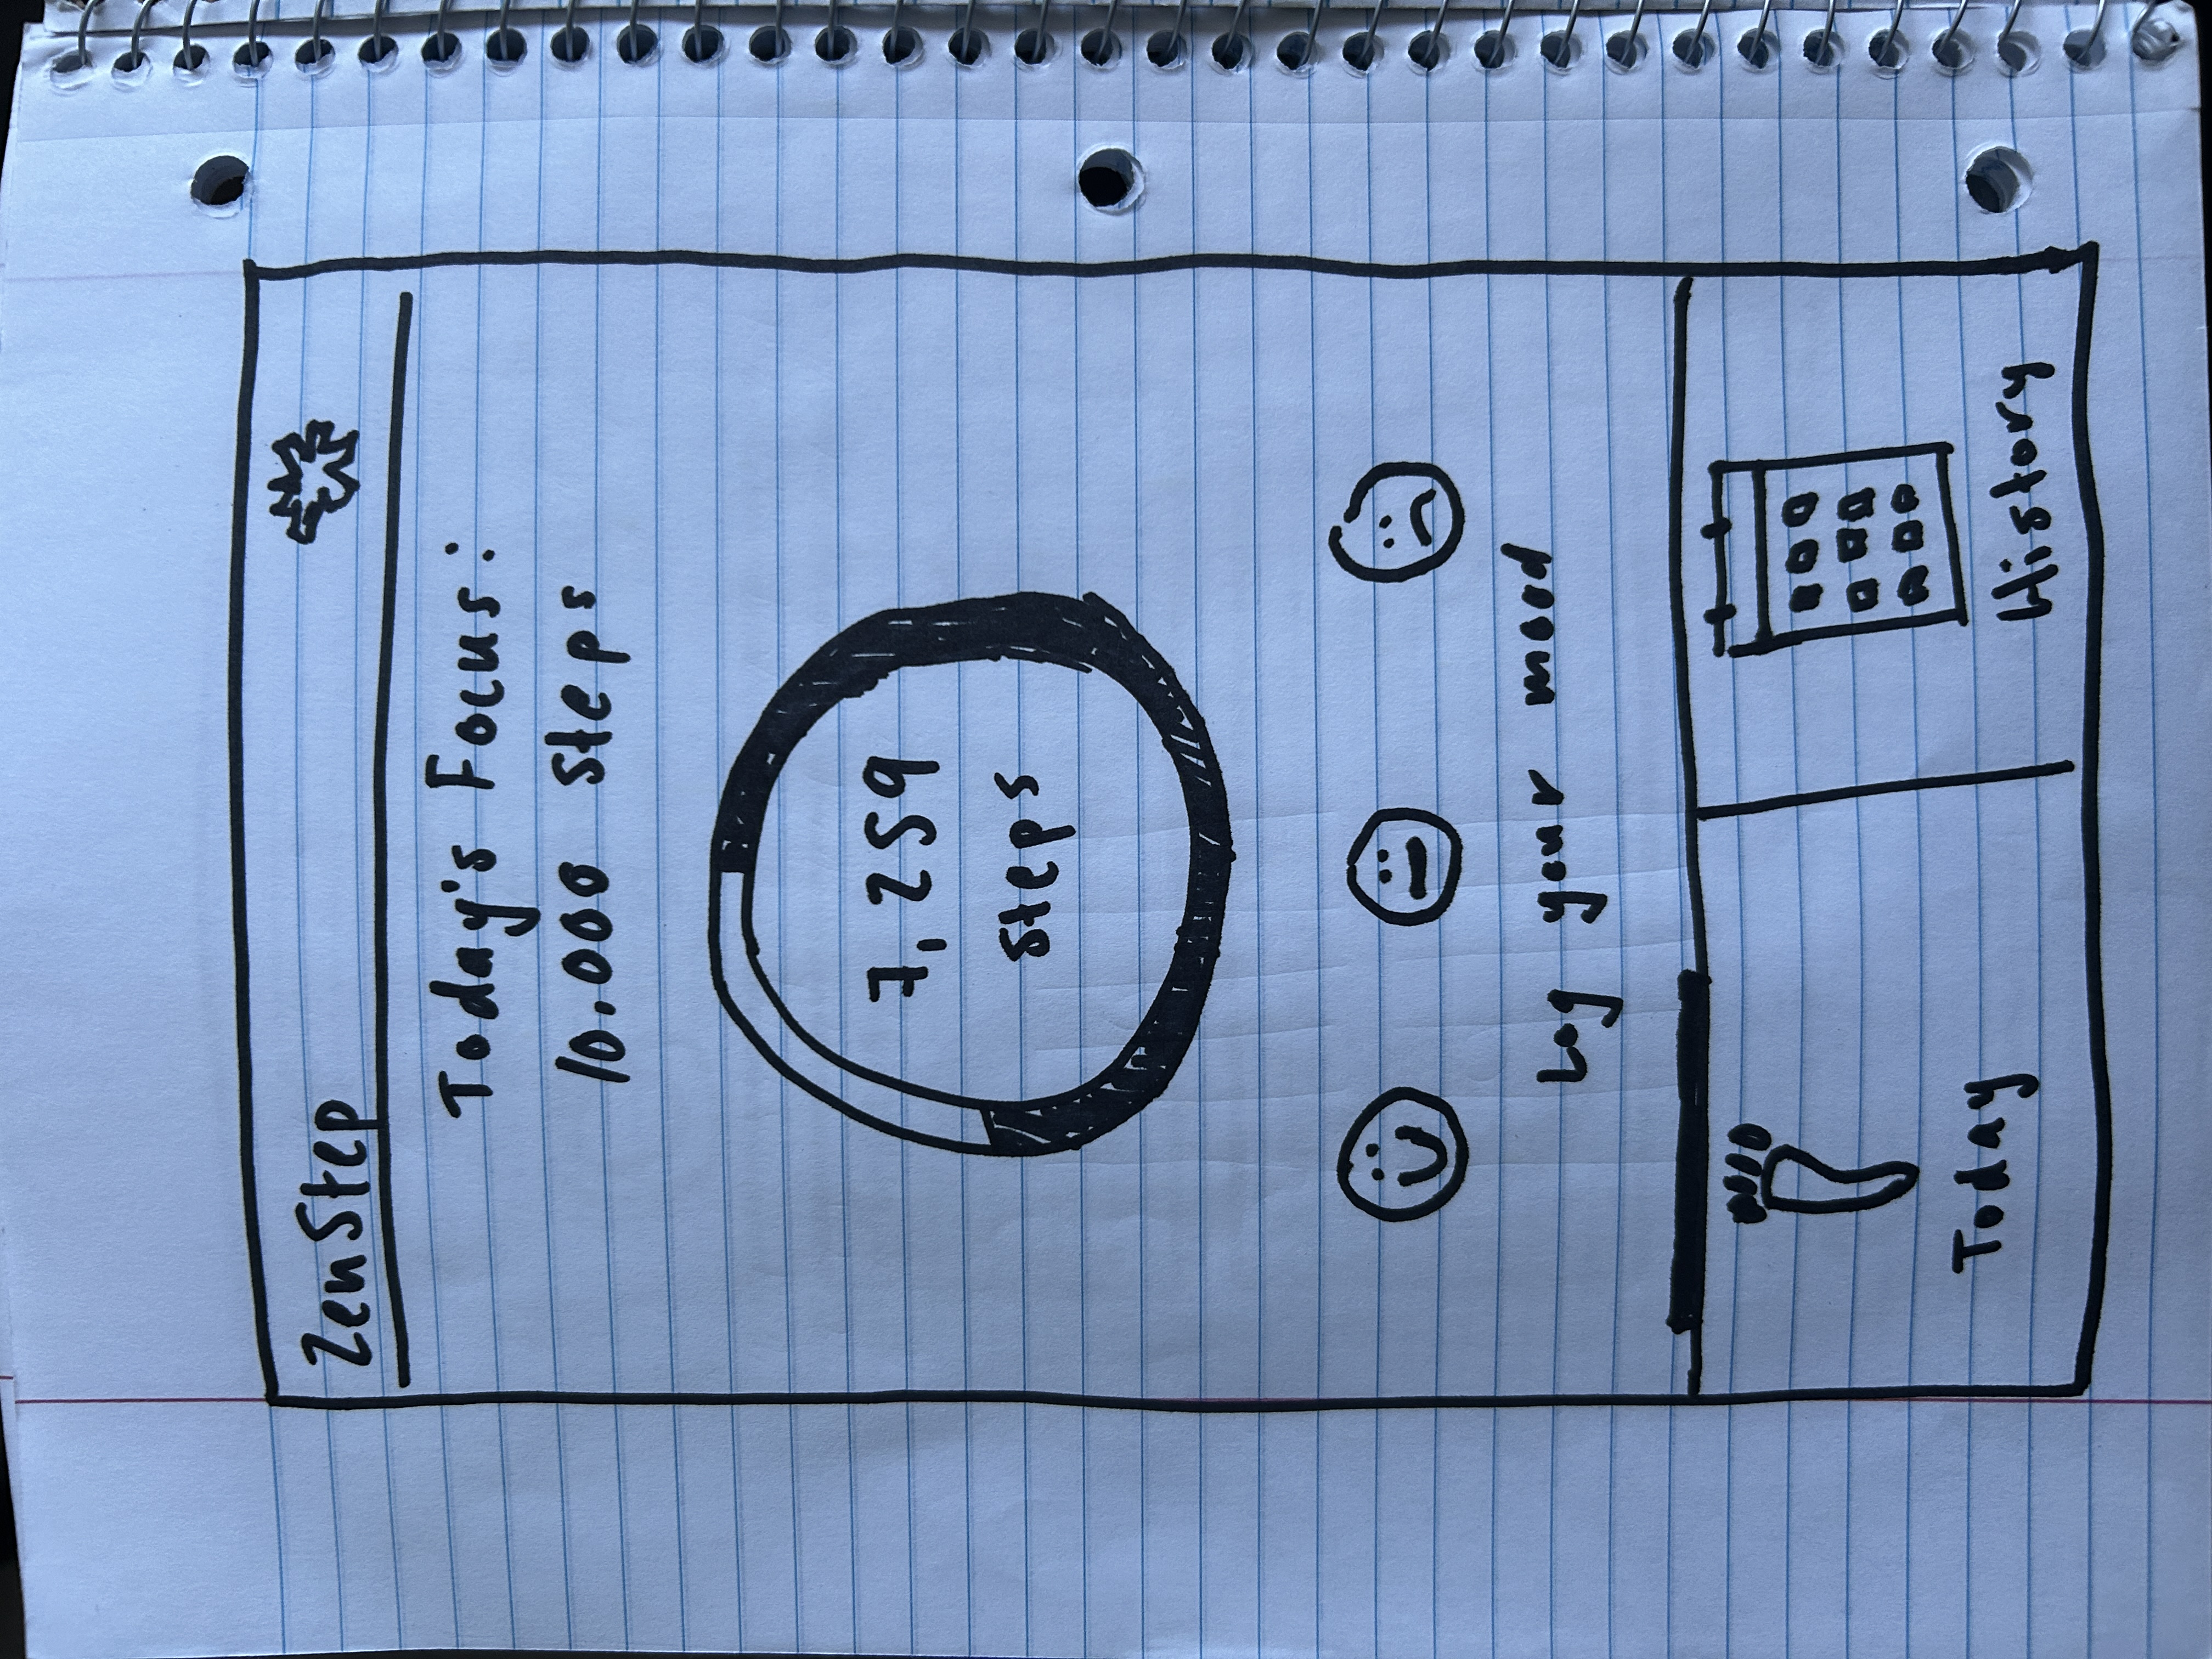 ZenStep
Today's Focus:
10.000 steps
7,259
steps
Log your mood
Today
History